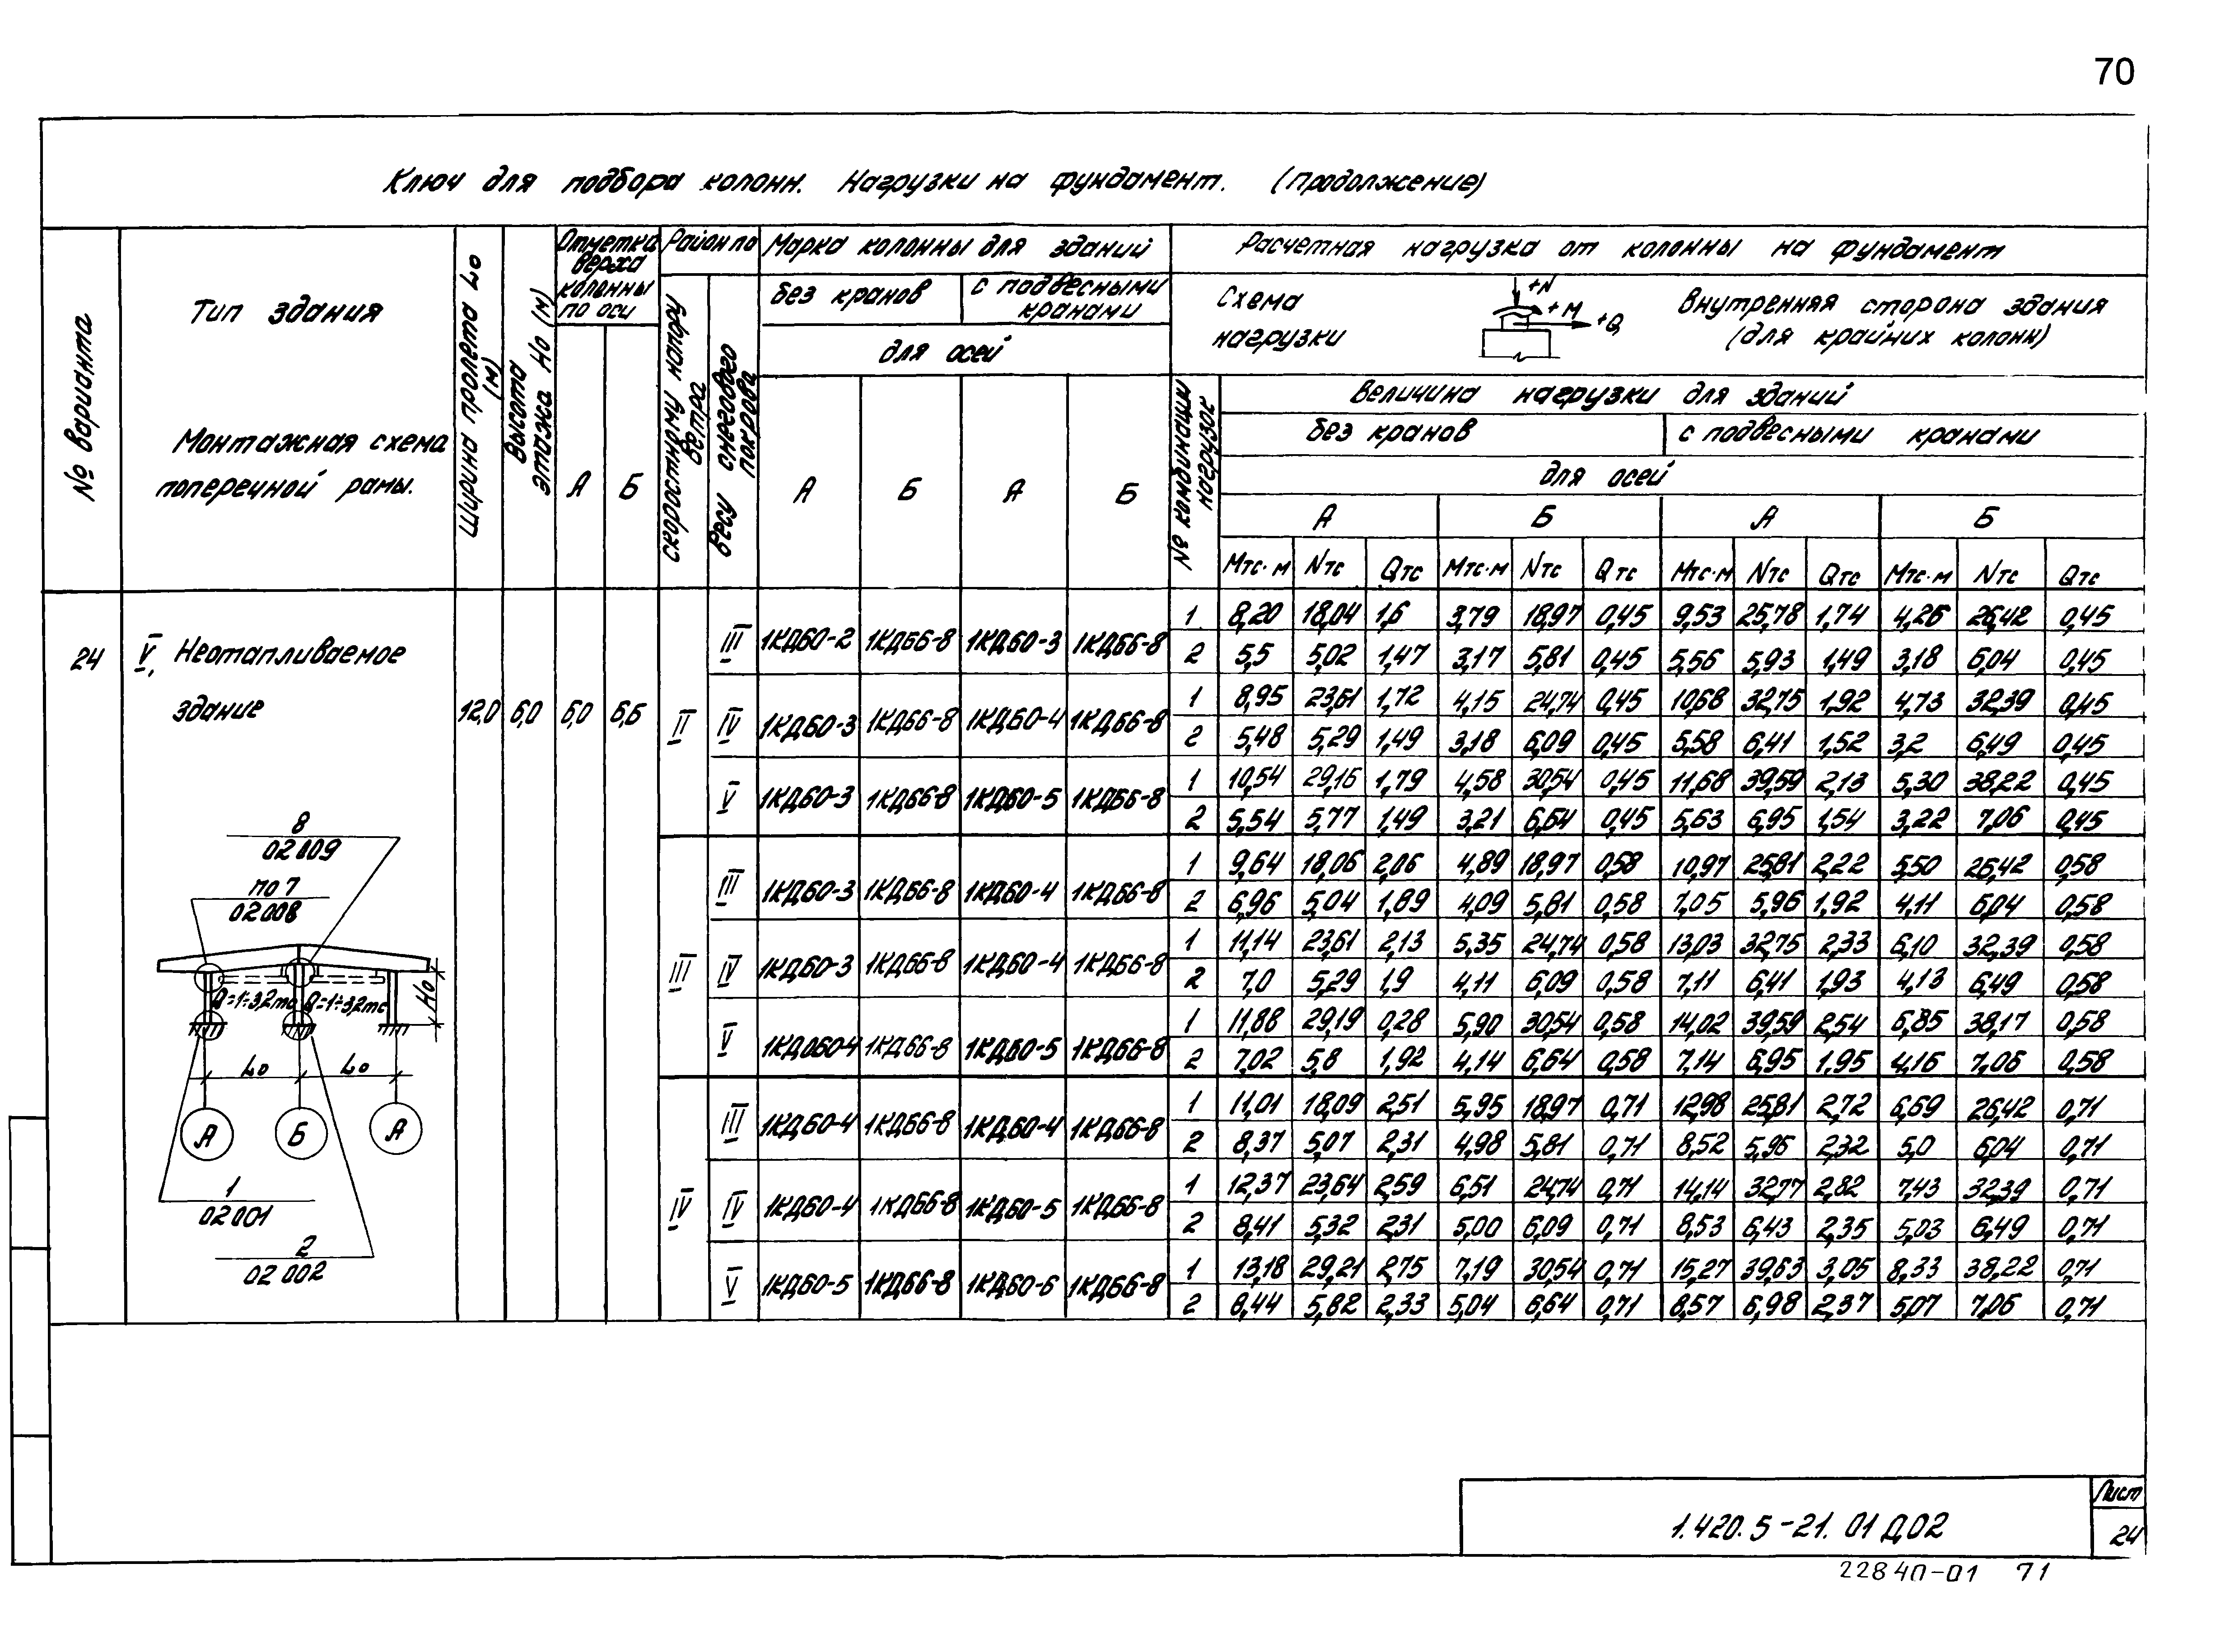 70
Ключ для подбора колонн. Нагрузки на фундамент. (продолжение)
№ варианта
Тип здания
Монтажная схема
поперечной рамы.
Ширина пролета Lо (м)
Высота этажа Hо (м)
Отметка верха колонны по оси
А Б
Район по
скоростному напору ветра
весу снегового покрова
Марка колонны для зданий
без кранов
с подвесными кранами
для осей
А Б А Б
Расчетная нагрузка от колонны на фундамент
Схема нагрузки
+N
+M
+Q
Внутренняя сторона здания
(для крайних колонн)
№ комбинации нагрузок
Величина нагрузки для зданий
без кранов с подвесными кранами
для осей
А Б А Б
Мтс·м Nтс Qтс Мтс·м Nтс Qтс Мтс·м Nтс Qтс Мтс·м Nтс Qтс
24 V. Неотапливаемое
здание
12,0 6,0 6,0 6,6
II
III 1КД60-2 1КД66-8 1КД60-3 1КД66-8
1 8,20 18,04 1,6 3,79 18,97 0,45 9,53 25,78 1,74 4,26 26,42 0,45
2 5,5 5,02 1,47 3,17 5,81 0,45 5,56 5,93 1,49 3,18 6,04 0,45
IV 1КД60-3 1КД66-8 1КД60-4 1КД66-8
1 8,95 23,61 1,72 4,15 24,74 0,45 10,68 32,75 1,92 4,73 32,39 0,45
2 5,48 5,29 1,49 3,18 6,09 0,45 5,58 6,41 1,52 3,2 6,49 0,45
V 1КД60-3 1КД66-8 1КД60-5 1КД66-8
1 10,54 29,16 1,79 4,58 30,54 0,45 11,68 39,59 2,13 5,30 38,22 0,45
2 5,54 5,77 1,49 3,21 6,64 0,45 5,63 6,95 1,54 3,22 7,06 0,45
III
III 1КД60-3 1КД66-8 1КД60-4 1КД66-8
1 9,64 18,06 2,06 4,89 18,97 0,58 10,97 25,81 2,22 5,50 26,42 0,58
2 6,96 5,04 1,89 4,09 5,81 0,58 7,05 5,96 1,92 4,11 6,04 0,58
IV 1КД60-3 1КД66-8 1КД60-4 1КД66-8
1 11,14 23,61 2,13 5,35 24,74 0,58 13,03 32,75 2,33 6,10 32,39 0,58
2 7,0 5,29 1,9 4,11 6,09 0,58 7,11 6,41 1,93 4,13 6,49 0,58
V 1КД060-4 1КД66-8 1КД60-5 1КД66-8
1 11,88 29,19 0,28 5,90 30,54 0,58 14,02 39,59 2,54 6,85 38,17 0,58
2 7,02 5,8 1,92 4,14 6,64 0,58 7,14 6,95 1,95 4,16 7,06 0,58
IV
III 1КД60-4 1КД66-8 1КД60-4 1КД66-8
1 11,01 18,09 2,51 5,95 18,97 0,71 12,98 25,81 2,72 6,69 26,42 0,71
2 8,37 5,07 2,31 4,98 5,81 0,71 8,52 5,96 2,32 5,0 6,04 0,71
IV 1КД60-4 1КД66-8 1КД60-5 1КД66-8
1 12,37 23,64 2,59 6,51 24,74 0,71 14,14 32,77 2,82 7,43 32,39 0,71
2 8,41 5,32 2,31 5,00 6,09 0,71 8,53 6,43 2,35 5,03 6,49 0,71
V 1КД60-5 1КД66-8 1КД60-6 1КД66-8
1 13,18 29,21 2,75 7,19 30,54 0,71 15,27 39,63 3,05 8,33 38,22 0,71
2 8,44 5,82 2,33 5,04 6,64 0,71 8,57 6,98 2,37 5,07 7,06 0,71
8
02009
по 7
02008
Q=1÷3,2тс Q=1÷3,2тс
Hо
Lо Lо
А Б А
1
02001
2
02002
1.420.5-21.01Д02
Лист
24
22840-01 71